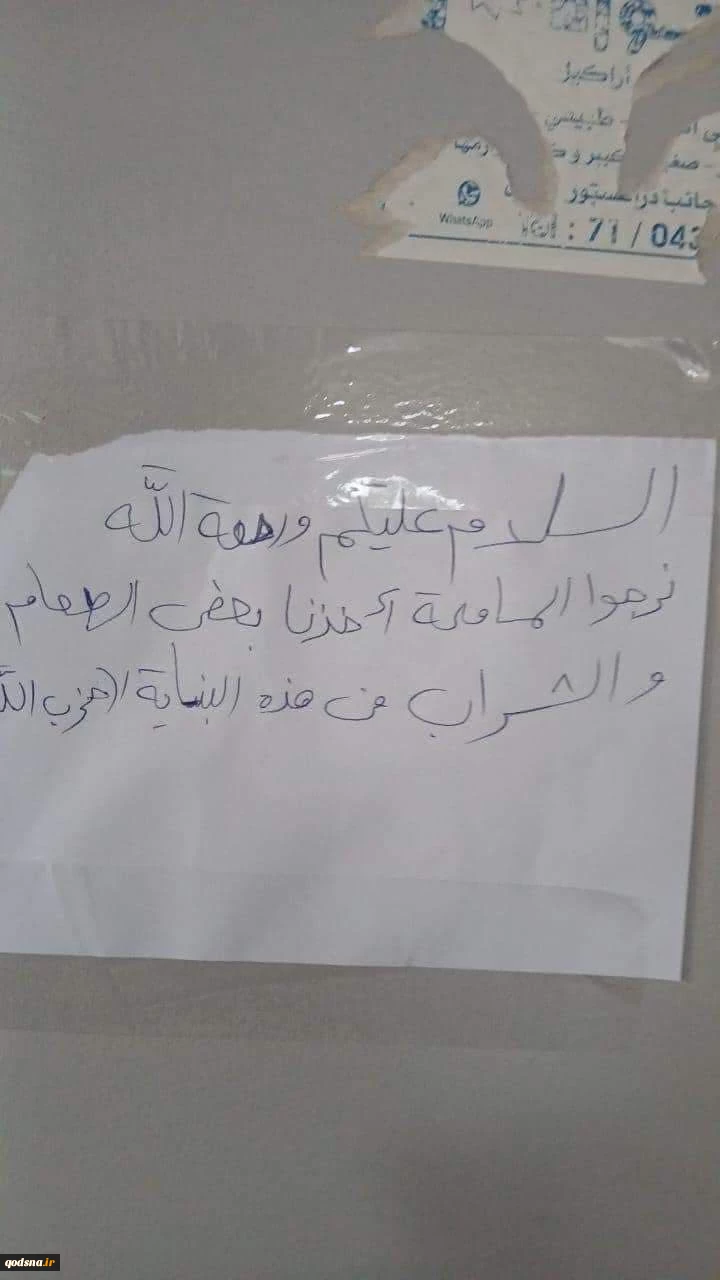 أراكيل
طبيس
جانب
WhatsApp
Tel : 71 / 043
السلام عليكم ورحمة الله
نرجوا المسامحة أخذنا بعض الطعام
والشراب من هذه البناية
qodsna.ir